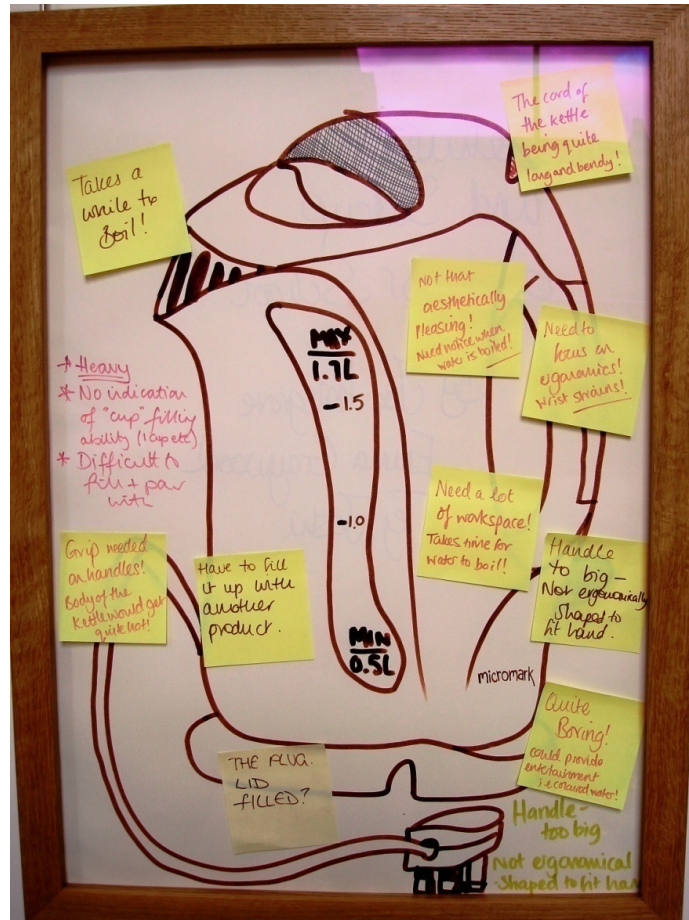 The cord of
the kettle
being quite
long and bendy!
Takes a
while to
Boil!
Not that
aesthetically
pleasing!
Need notice when
water is boiled!
Need to
focus on
ergonomics!
wrist strains!
MAX
1.7L
-1.5
-1.0
MIN
0.5L
* Heavy
* No indication
of "cup" filling
ability (1 cup etc)
* Difficult to
fill + pour
with
Need a lot
of workspace!
Takes time for
water to boil!
Grip needed
on handles!
Body of the
Kettle would get
quite hot!
Have to fill
it up with
another
product.
Handle
to big -
Not ergonomically
shaped to
fit hand.
micromark
Quite
Boring!
could provide
entertainment
i.e coloured water!
THE PLUG.
LID
FILLED?
Handle -
too big
Not ergonomical
- Shaped to fit han